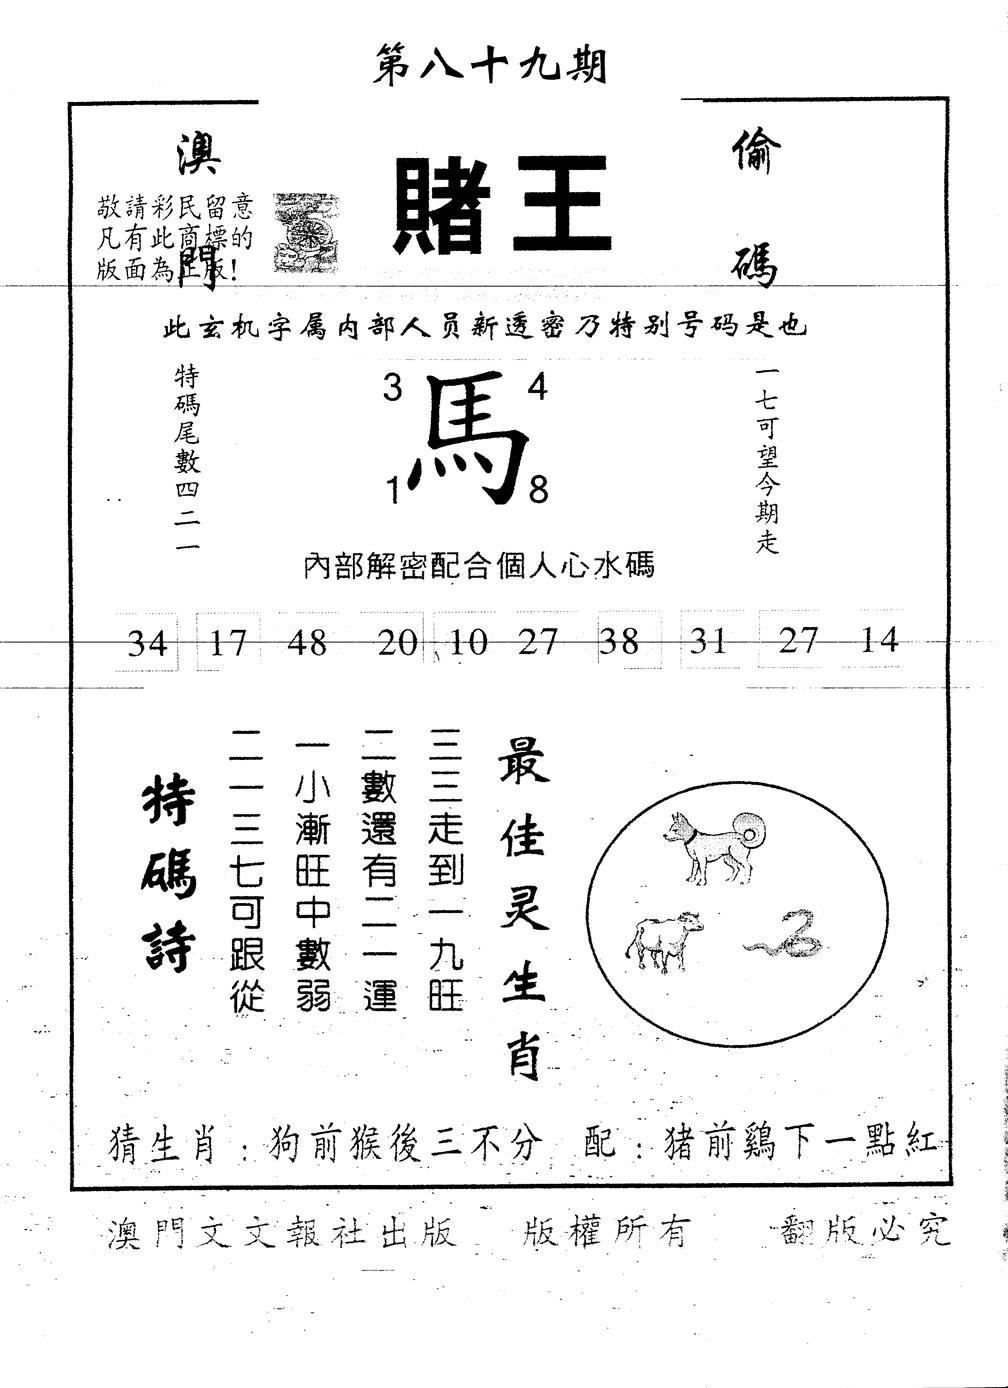 第八十九期
澳門
賭王
偷碼
敬請彩民留意
凡有此商標的
版面為正版!
此玄机字属内部人员新透密乃特别号码是也
特碼尾數四二一
3 4
馬
1 8
一七可望今期走
內部解密配合個人心水碼
34 17 48 20 10 27 38 31 27 14
最佳灵生肖
三三走到一九旺
二數還有二一運
一小漸旺中數弱
二一三七可跟從
特碼詩
猜生肖:狗前猴後三不分 配:猪前鷄下一點紅
澳門文文報社出版 版權所有 翻版必究